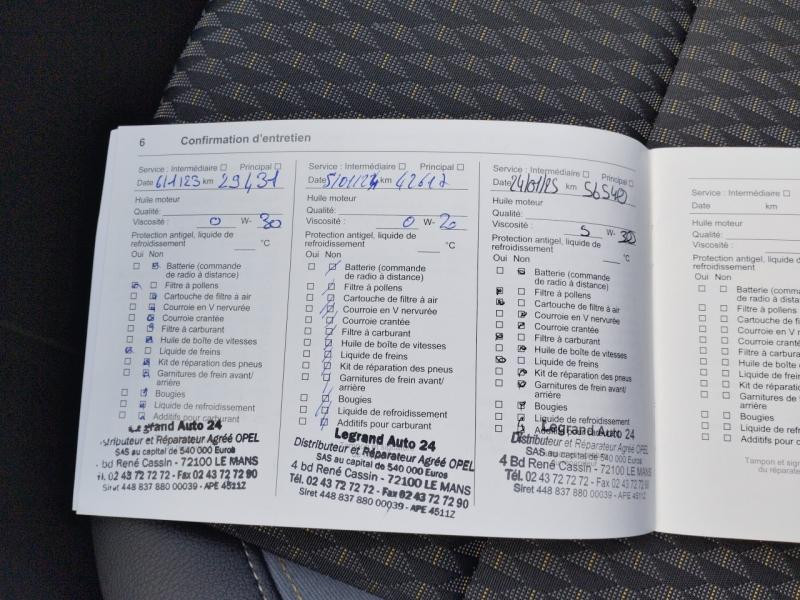 6 Confirmation d'entretien
Service : Intermédiaire ☐ Principal ☐
Date 6/1/23 km 29431
Huile moteur
Qualité:
Viscosité : 0 W- 30
Protection antigel, liquide de
refroidissement °C
Oui Non
Batterie (commande
de radio à distance)
Filtre à pollens
Cartouche de filtre à air
Courroie en V nervurée
Courroie crantée
Filtre à carburant
Huile de boîte de vitesses
Liquide de freins
Kit de réparation des pneus
Garnitures de frein avant/
arrière
Bougies
Liquide de refroidissement
Additifs pour carburant
Legrand Auto 24
Distributeur et Réparateur Agréé OPEL
SAS au capital de 540 000 Euros
bd René Cassin - 72100 LE MANS
Tél. 02 43 72 72 72 - Fax 02 43 72 72 90
Siret 448 837 880 00039 - APE 4511Z
Service : Intermédiaire ☐ Principal ☐
Date 5/01/24 km 42617
Huile moteur
Qualité:
Viscosité : 0 W- 20
Protection antigel, liquide de
refroidissement °C
Oui Non
Batterie (commande
de radio à distance)
Filtre à pollens
Cartouche de filtre à air
Courroie en V nervurée
Courroie crantée
Filtre à carburant
Huile de boîte de vitesses
Liquide de freins
Kit de réparation des pneus
Garnitures de frein avant/
arrière
Bougies
Liquide de refroidissement
Additifs pour carburant
Legrand Auto 24
Distributeur et Réparateur Agréé OPEL
SAS au capital de 540 000 Euros
4 bd René Cassin - 72100 LE MANS
Tél. 02 43 72 72 72 - Fax 02 43 72 72 90
Siret 448 837 880 00039 - APE 4511Z
Service : Intermédiaire ☐ Principal ☐
Date 24/01/25 km 56540
Huile moteur
Qualité:
Viscosité : 5 W- 30
Protection antigel, liquide de
refroidissement °C
Oui Non
Batterie (commande
de radio à distance)
Filtre à pollens
Cartouche de filtre à air
Courroie en V nervurée
Courroie crantée
Filtre à carburant
Huile de boîte de vitesses
Liquide de freins
Kit de réparation des pneus
Garnitures de frein avant/
arrière
Bougies
Liquide de refroidissement
Legrand Auto 24
Distributeur et Réparateur Agréé OPEL
SAS au capital de 540 000 Euros
4 Bd René Cassin - 72100 LE MANS
Tél. 02 43 72 72 72 - Fax 02 43 72 72 90
Siret 448 837 880 00039 - APE 4511Z
Service : Intermédiaire ☐
Date km
Huile moteur
Qualité:
Viscosité :
Protection antigel, liquide de
refroidissement
Oui Non
Batterie (comma
de radio à dista
Filtre à pollens
Cartouche de filt
Courroie en V ne
Courroie cranté
Filtre à carbura
Huile de boîte
Liquide de frein
Kit de réparation
Garnitures de f
arrière
Bougies
Liquide de refr
Additifs pour c
Tampon et sign
du réparate